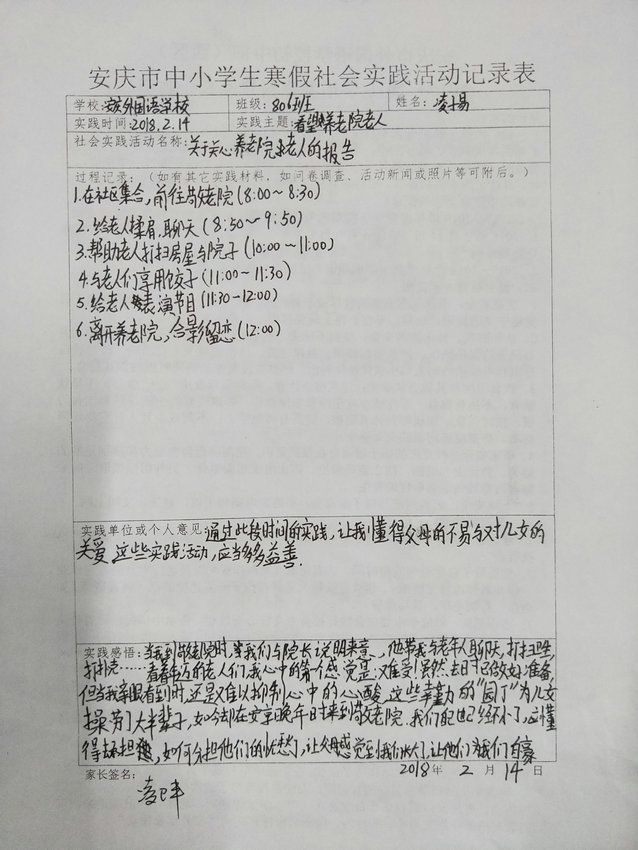 安庆市中小学生寒假社会实践活动记录表
学校:安庆外国语学校 班级:806班 姓名:凌子易
实践时间:2018.2.14 实践主题:看望养老院老人
社会实践活动名称:关于关心养老院老人的报告
过程记录:(如有其它实践材料,如问卷调查、活动新闻或照片等可附后。)
1.在社区集合,前往敬老院(8:00~8:30)
2.给老人揉肩,聊天(8:50~9:50)
3.帮助老人打扫房屋与院子(10:00~11:00)
4.与老人们享用饺子(11:00~11:30)
5.给老人表演节目(11:30~12:00)
6.离开养老院,合影留恋(12:00)
实践单位或个人意见:通过此段时间的实践,让我懂得父母的不易与对儿女的
关爱,这些实践活动,应当多多益善.
实践感悟:当我到敬老院时,等我们与院长说明来意,他带我与老年人聊天,打扫卫生,
打扑克……看着年迈的老人们,我心中的第一感觉是:难受!虽然去时已做好准备,
但当我亲眼看到时,还是难以抑制心中的心酸,这些辛勤的“园丁”为儿女
操劳了大半辈子,如今却在安享晚年时来到敬老院.我们现已经不小了,应懂
得承担,如何分担他们的忧愁,让父母感觉到我们长大了,让他们为我们自豪
家长签名: 2018年 2 月 14 日